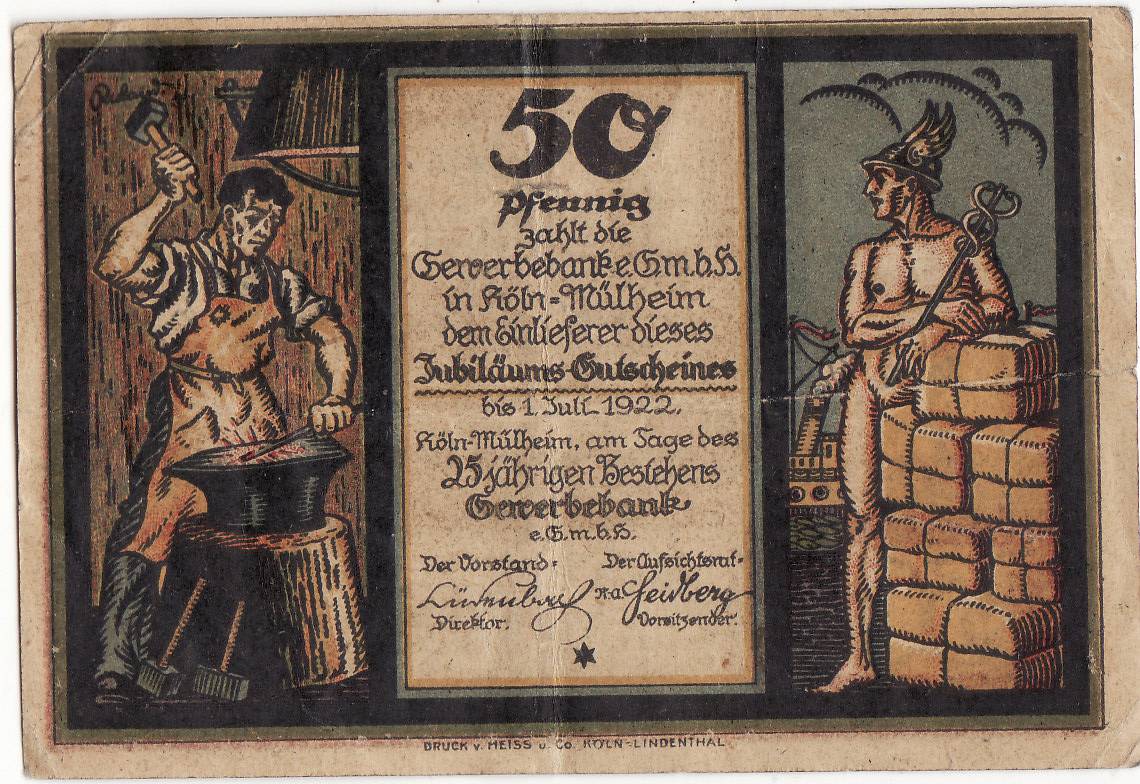 50
Pfennig
zahlt die
Gewerbebank e.G.m.b.H.
in Köln=Mülheim
dem Einlieferer dieses
Jubiläums-Gutscheines
bis 1. Juli 1922.
Köln-Mülheim, am Tage des
25jährigen Bestehens
Gewerbebank
e.G.m.b.H.
Der Vorstand: Der Aufsichtsrat:
Direktor. Vorsitzender.
DRUCK v. HEISS u. Co. KÖLN-LINDENTHAL